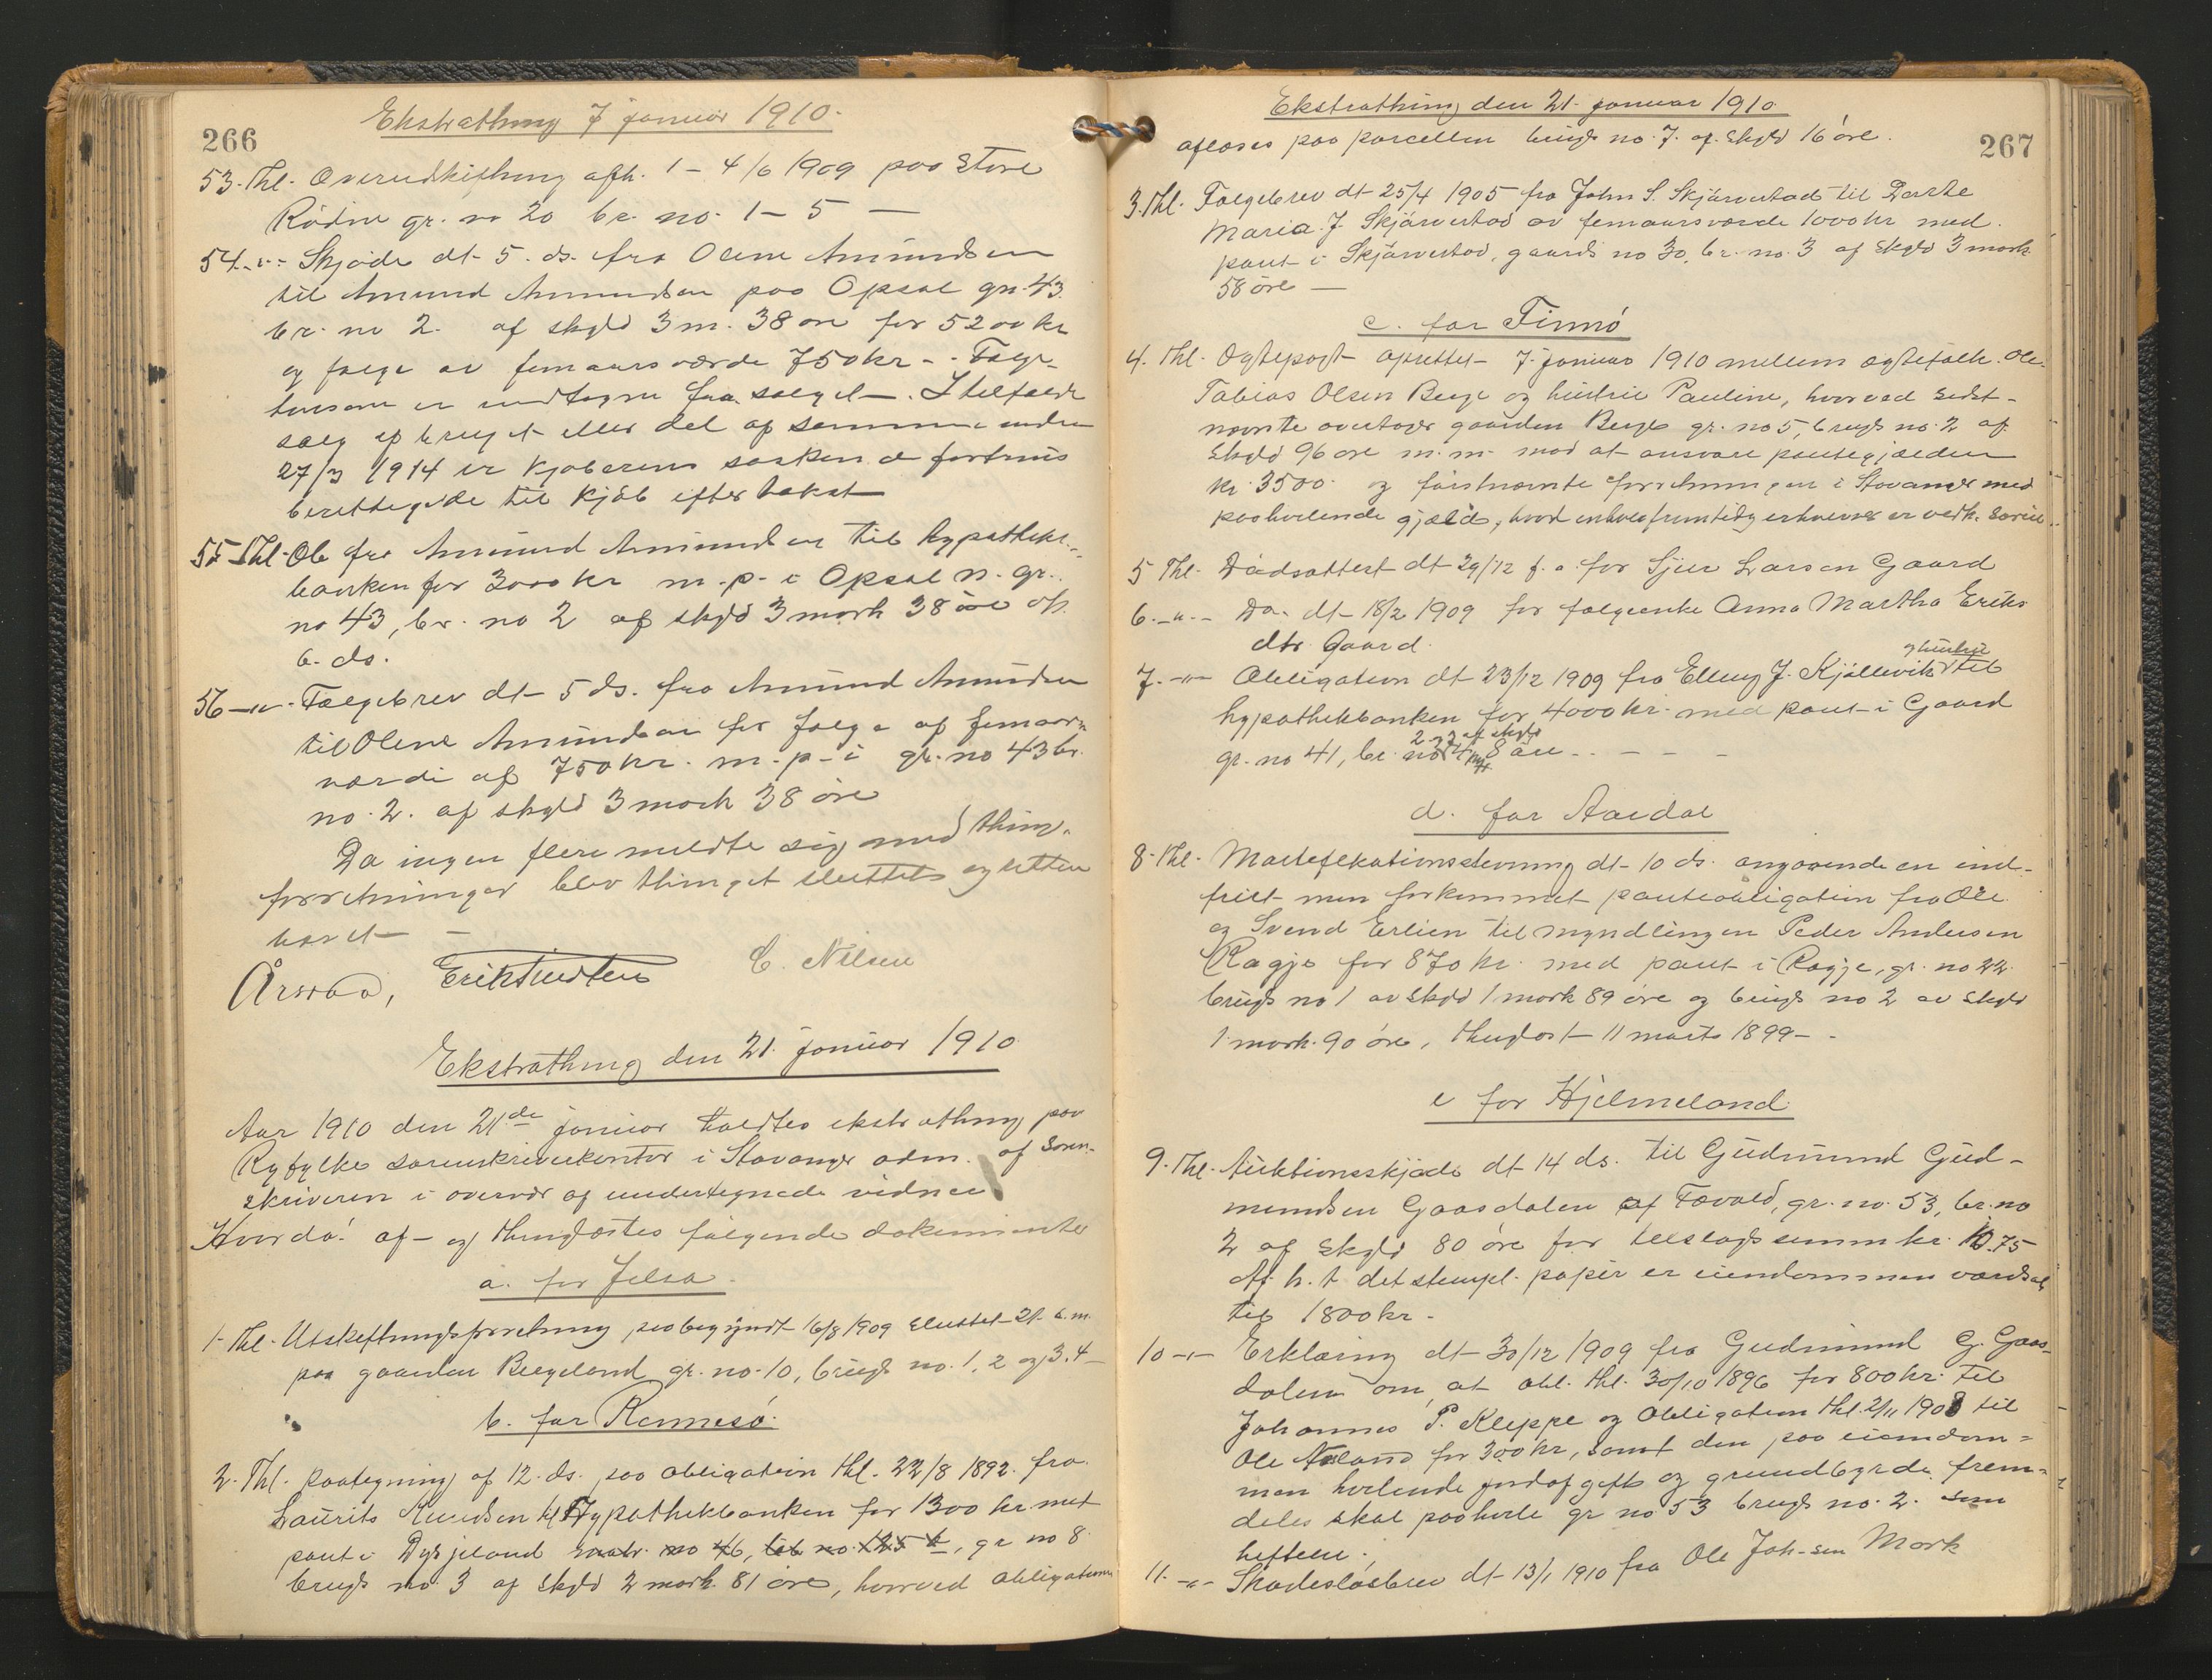 266
Ekstrathing 7 januar 1910.
53. Thl. Overudskiftning afh. 1 - 4/6 1909 paa Store
gr. no 20 br. no. 1 - 5 —
54. -"- Skjøde dt. 5. ds. fra Olene Amundsen
til Amund Amundsen paa Opsal gr. 43.
br. no 2. af skyld 3 m. 38 øre for 5200 kr
og følge av femaarsværde 750 kr -. Følge-
er undtagne fra salget. I tilfælde
salg af bruget eller del af samme inden
27/3 1914 er kjøberens søsken
berettigede til kjøb efter takst
55 Thl. Ob fra Amund Amundsen til hypotheks-
banken for 3000 kr m. p. i Opsal n. gr.
no 43, br. no 2 af skyld 3 mark 38 øre dt.
6. ds.
56 -"- Følgebrev dt 5 ds. fra Amund Amundsen
til Olene Amundsen for følge af femaars
værdi af 750 kr. m. p. i gr. no 43 br.
no. 2. af skyld 3 mark 38 øre
Da ingen flere meldte sig med thing-
forretninger blev thinget sluttet og retten
hævet —
C. Nilsen
Ekstrathing den 21. januar 1910
Aar 1910 den 21de januar holdtes ekstrathing paa
Ryfylke sorenskriverkontor i Stavanger adm. af soren-
skriveren i overvær af undertegnede vidner
Hvorda! af- og thinglæstes følgende dokumenter
a. for Jelsa.
1. Thl. Utskiftningsforretning, paabegyndt 16/8 1909 sluttet 21. s. m.
paa gaarden Bergeland gr. no. 10, brugs no. 1, 2 og 3, 4 -
b. for Rennesø.
2. Thl. paategning af 12. ds. paa obligation thl. 22/8 1892 fra
Laurits Knudsen til Hypothekbanken for 1300 kr met
pant i Dysjeland matr. no 46, løb no. 125 b, gr no 8
brugs no. 3 af skyld 2 mark. 81 øre, hvorved obligationen
Ekstrathing den 21. januar 1910
267
afløses paa parcellen brugs no. 7. af skyld 16 øre.
3. Thl. Følgebrev dt 25/4 1905 fra John S. Skjørvestad til Dorte
Maria J. Skjørvestad av femaarsværde 1000 kr med
pant i Skjørvestad, gaards no 30, br. no. 3 af skyld 3 mark
58 øre —
c. for Finnø
4. Thl. Ægtepagt oprettet 7. januar 1910 mellem ægtefolk. Ole
Tobias Olsen Berge og hustru Pauline, hvorved sidst-
nævnte overtager gaarden Berge gr. no 5, brugs no. 2 af
skyld 96 øre m. m. mod at ansvare pantegjælden
kr. 3500. og førstnævnte forretningen i Stavanger med
paahvilende gjæld, hvad enhver fremtidig erhverver er vedk. særeie.
5 Thl. Dødsattest dt 29/12 f. a. for Sjur Larsen Gaard
6. -"- Do. dt 18/2 1909 for følgeenke Anna Martha Eriks
dtr. Gaard.
7. -"- Obligation dt 23/12 1909 fra Elling J. Kjøllevik og hustru til
hypothekbanken for 4000 kr. med pant i Gaard
gr. no 41, br. no 2 og 3 af skyld 4 mk 8 øre. - - -
d. for Aardal
8. Thl. Mortefikationsstevning dt 10 ds. angaaende en ind-
friet men forkommet panteobligation fra Ole
og Svend Erlien til myndlingen Peder Andersen
Ragje for 870 kr. med pant i Ragje, gr. no 22
brugs no 1 av skyld 1 mark 89 øre og brugs no 2 av skyld
1 mark. 90 øre, thinglæst 11 marts 1899 -.
e for Hjelmeland
9. Thl. Auktionsskjøde dt 14 ds. til Gudmund Gud-
mundsen Gaasdalen af gr. no. 53, br. no
2 af skyld 80 øre for tilslagssumm kr. 10.75
Af h. t. det stempl. papir er eiendommen værdsat
til 1800 kr.
10 -"- Erklæring dt 30/12 1909 fra Gudmund G. Gaas-
dalen om, at obl. thl. 30/10 1896 for 800 kr. til
Johannes P. Kleppe og Obligation thl. 2/11 1908 til
Ole for 300 kr, samt den paa eiendom-
men hvilende jordafgift og grundbyrde frem-
deles skal paahvile gr no 53 brugs no. 2. som
heftelse.
11. -"- Skadesløsbrev dt 13/1 1910 fra Ole Joh-sen Mork